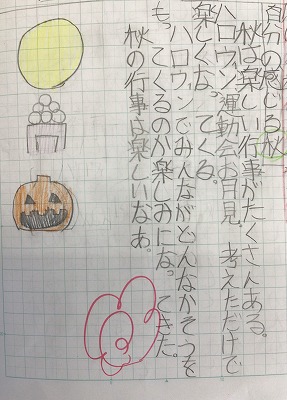 自分の感じる秋
秋は楽しい行事がたくさんある。
ハロウィン、運動会、お月見、考えただけで
楽しくなってくる。
ハロウィンでみんながどんなかそうを
もってくるのか楽しみになってきた。
秋の行事は楽しいなあ。